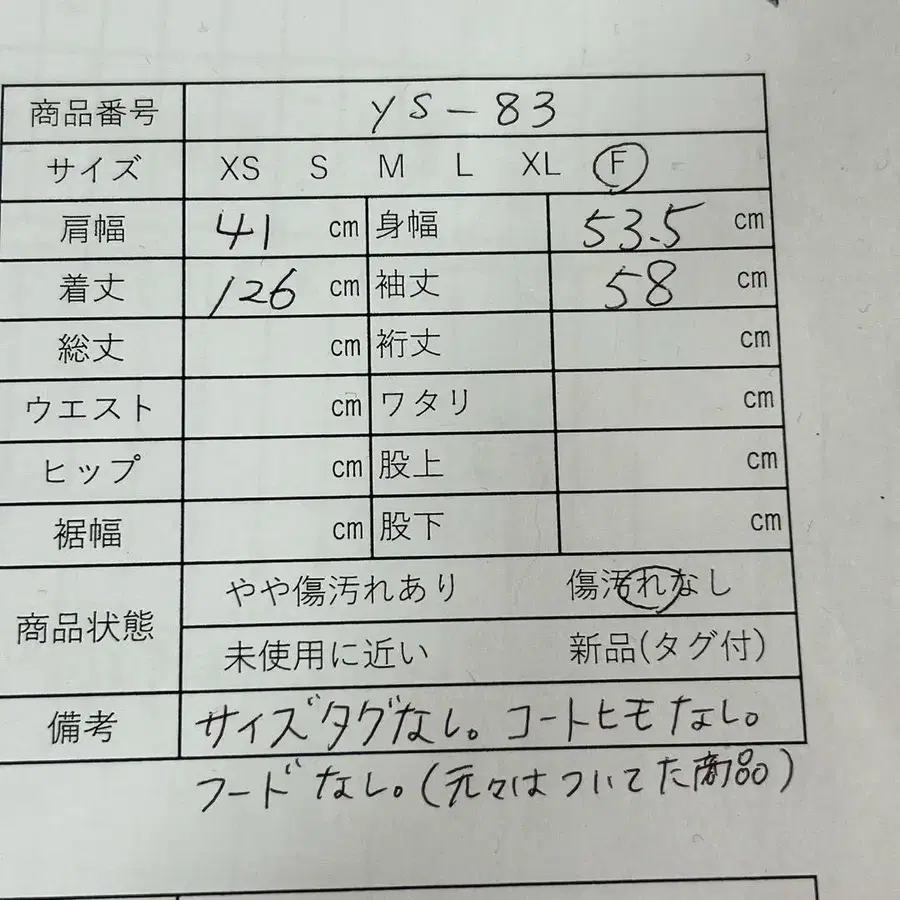 商品番号 YS-83
サイズ XS S M L XL F
肩幅 41 cm 身幅 53.5 cm
着丈 126 cm 袖丈 58 cm
総丈 cm 裄丈 cm
ウエスト cm ワタリ cm
ヒップ cm 股上 cm
裾幅 cm 股下 cm
商品状態 やや傷汚れあり 傷汚れなし
未使用に近い 新品(タグ付)
備考 サイズタグなし。コートヒモなし。
フードなし。(元々はついてた商品)